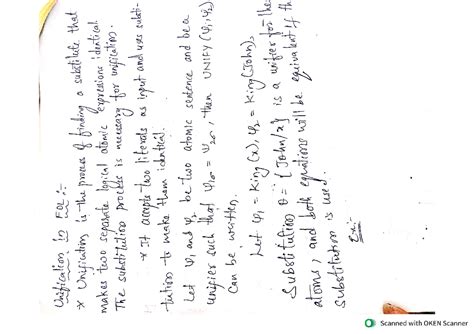 Unification in FOL :-
* Unification is the process of finding a substitute that
makes two separate logical atomic expressions identical.
The substitution process is necessary for unification.
* It accepts two literals as input and uses substi-
tution to make them identical.
Let Ψ₁ and Ψ₂ be two atomic sentence and be a
unifier such that Ψ₁∞ = Ψ₂∞, then UNIFY (Ψ₁, Ψ₂)
Can be written.
Let Ψ₁ = King (x), Ψ₂ = King (John),
Substitution θ = {John/x} is a unifier for these
atoms, and both equations will be equivalent if the
Substitution is used.
Ex:-
Scanned with OKEN Scanner